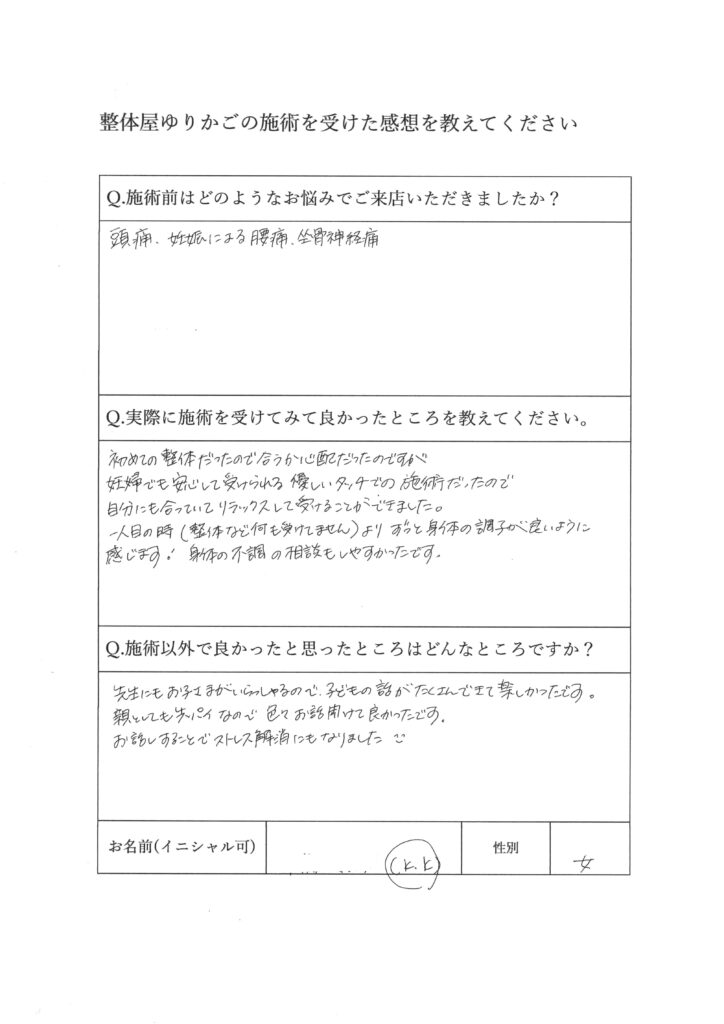 整体屋ゆりかごの施術を受けた感想を教えてください
Q.施術前はどのようなお悩みでご来店いただきましたか？
頭痛、妊娠による腰痛、坐骨神経痛
Q.実際に施術を受けてみて良かったところを教えてください。
初めての整体だったので合うか心配だったのですが
妊婦でも安心して受けられる優しいタッチでの施術だったので
自分にも合っていてリラックスして受けることができました。
一人目の時(整体など何も受けてません)よりずっと身体の調子が良いように
感じます！身体の不調の相談もしやすかったです。
Q.施術以外で良かったと思ったところはどんなところですか？
先生にもお子さまがいらっしゃるので、子どもの話がたくさんできて楽しかったです。
親としても先パイなので色々お話聞けて良かったです。
お話しすることでストレス解消にもなりました
お名前(イニシャル可)
(K.K)
性別
女